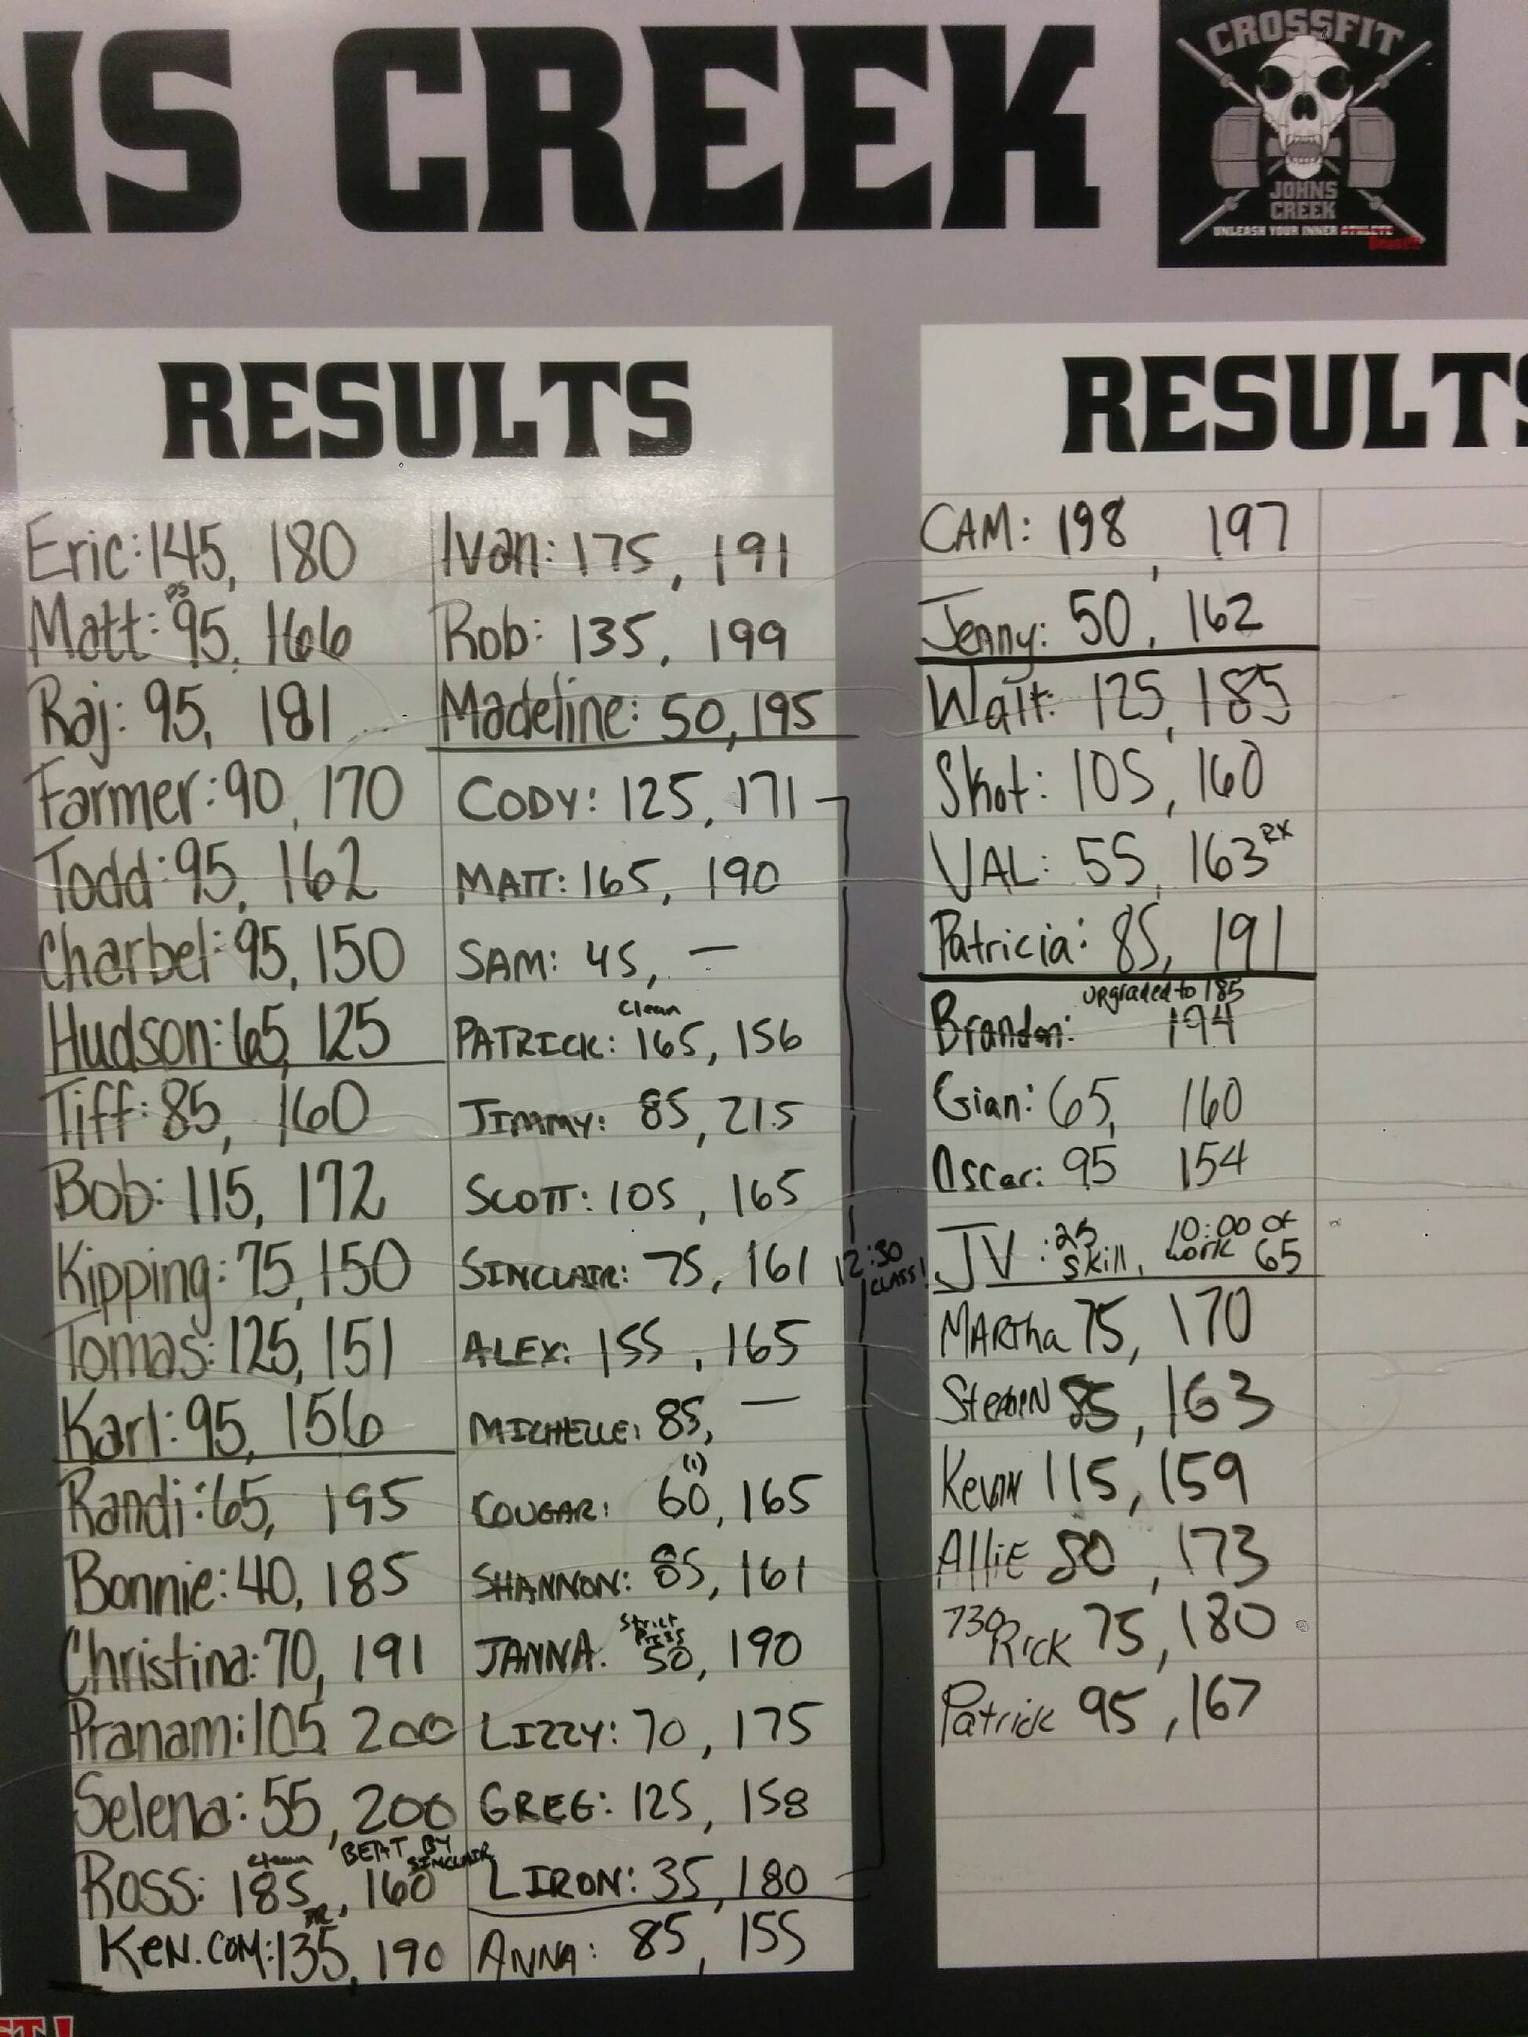 NS CREEK
CROSSFIT
JOHNS
CREEK
UNLEASH YOUR INNER ATHLETE
RESULTS
Eric: 145, 180
PS
Matt: 95, 166
Raj: 95, 181
Farmer: 90, 170
Todd: 95, 162
Charbel: 95, 150
Hudson: 65, 125
Tiff: 85, 160
Bob: 115, 172
Kipping: 75, 150
Tomas: 125, 151
Karl: 95, 156
Randi: 65, 195
Bonnie: 40, 185
Christina: 70, 191
Pranam: 105, 200
Selena: 55, 200
clean BEAT BY SINCLAIR
Ross: 185, 160
PR
KEN.COM: 135, 190
Ivan: 175, 191
Rob: 135, 199
Madeline: 50, 195
CODY: 125, 171
MATT: 165, 190
SAM: 45, —
clean
PATRICK: 165, 156
JIMMY: 85, 215
SCOTT: 105, 165
SINCLAIR: 75, 161
ALEX: 155, 165
MICHELLE: 85, —
(1)
COUGAR: 60, 165
SHANNON: 85, 161
Strict Press
JANNA: 50, 190
LIZZY: 70, 175
GREG: 125, 158
LIRON: 35, 180
ANNA: 85, 155
12:30
CLASS!
RESULTS
CAM: 198, 197
Jenny: 50, 162
Walt: 125, 185
Skot: 105, 160
VAL: 55, 163 RX
Patricia: 85, 191
upgraded to 185
Brandon: 194
Gian: 65, 160
Oscar: 95 154
JV: 25 skill, 10:00 of work 65
MARTha 75, 170
Stephen 85, 163
Kevin 115, 159
AlliE 80, 173
730 Rick 75, 180
Patrick 95, 167